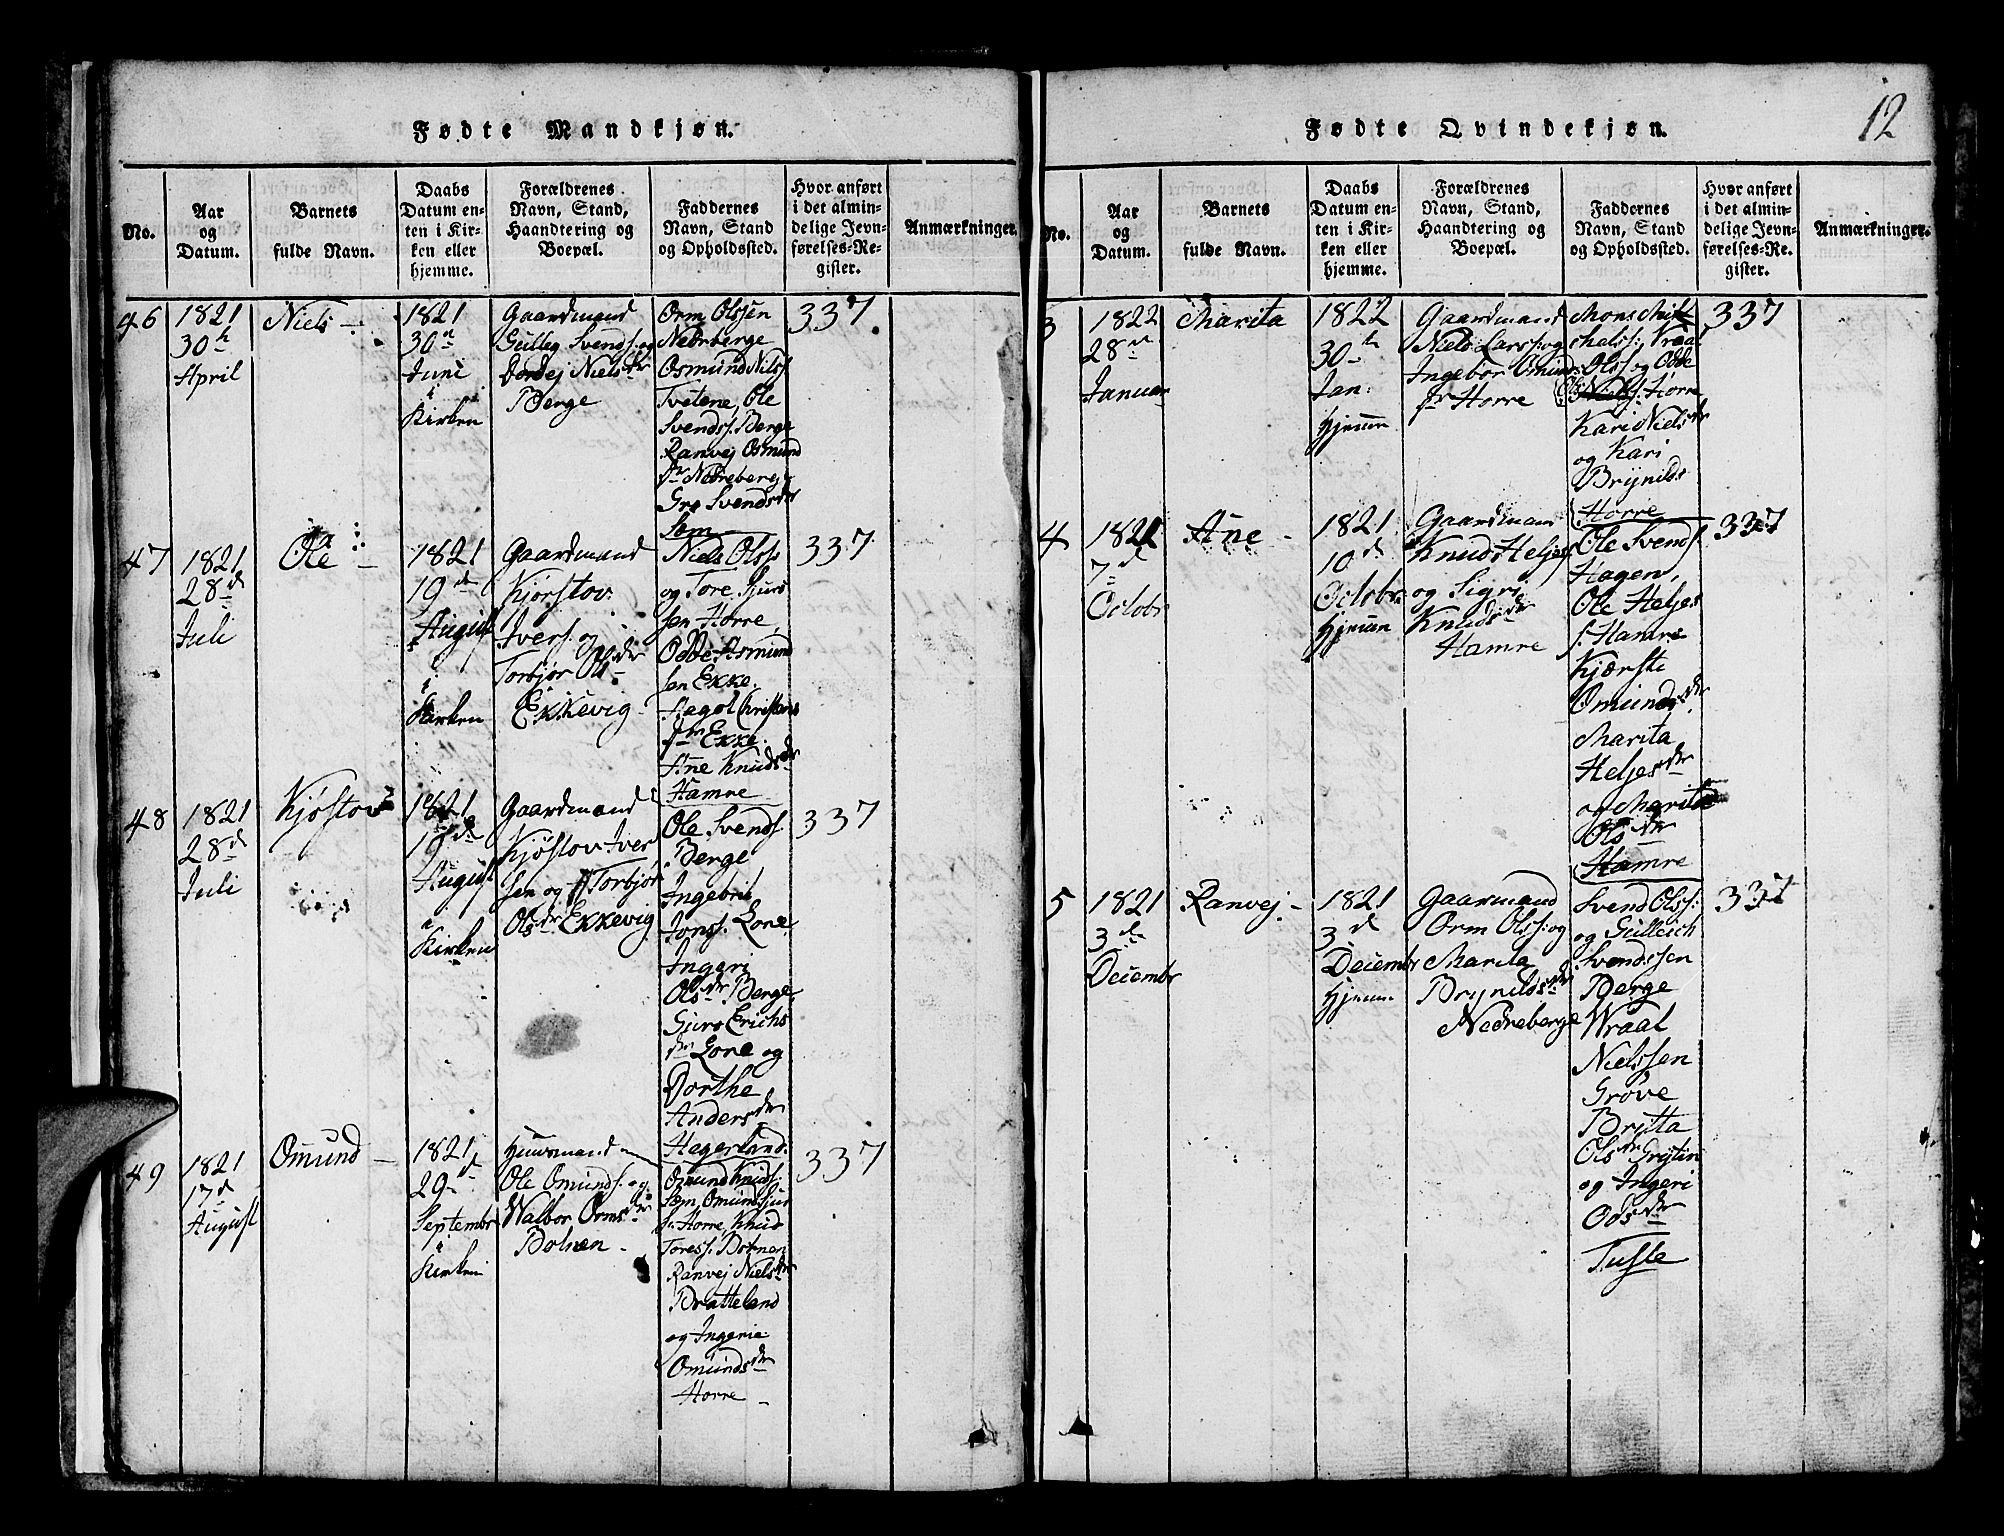 Fødte Mandkjøn.
No.
Aar
og
Datum.
Barnets
fulde Navn.
Daabs
Datum en-
ten i Kir-
ken eller
hjemme.
Forældrenes
Navn, Stand,
Haandtering og
Boepæl.
Faddernes
Navn, Stand
og Opholdssted.
Hvor anført
i det almin-
delige Jevn-
førelses-Re-
gister.
Anmærkninger.
46
1821
30
April
Niels
1821
30
Juni
i
Kirken
Gaardmand
Gulleg Svends. og
Niels
Berge
Orm Olssen
Nedrberge
Osmund Nils.
Tvetene, Ole
Svends. Berge
Ranvej Osmund
dr Nedreberg
Gro Svendsdr
Sem
337
47
1821
28d
Juli
Ole
1821
19de
August
i
Kirken
Gaardmand
Kjørstov
Ivers. og
Torbjør Olsdr
Ekkevig
Niels Olss.
og Tore Sjurs
sen Horre
Odde Asmund
sen Ekke.
Christens
dr Ekke.
Ane Knudsdr
Hamre
337
48
1821
28d
Juli
Kjøstov
1821
19de
August
i
Kirken
Gaardmand
Kjøstov Iver
sen og Torbjør
Olsdr Ekkevig
Ole Svends.
Berge
Ingebrit
Jonss. Lone
Ingeri
Olsdr Berge
Guro Erichs
dr Lone og
Dorthe
Andersdr
Hegerland
337
49
1821
17d
August
Omund
1821
29d
Septembr
i
Kirken
Huusmand
Ole Omunds. og
Walbor Ormsdr
Botnen
Omund Knuds.
Sem, Omund Sjur
s. Horre, Knud
Toress. Botnen
Ranvej Nielsdr
Bratteland
og Ingerie
Omundsdr
Horre
337
Fødte Qvindekjøn.
12
No.
Aar
og
Datum.
Barnets
fulde Navn.
Daabs
Datum en-
ten i Kir-
ken eller
hjemme.
Forældrenes
Navn, Stand,
Haandtering og
Boepæl.
Faddernes
Navn, Stand
og Opholdssted.
Hvor anført
i det almin-
delige Jevn-
førelses-Re-
gister.
Anmærkninger.
3
1822
28
Januar
Marita
1822
30
Jan:
Hjemme
Gaardmand
Niels Larss: og
Ingebor Omunds
dr Horre
Mons Mik
Olss. og Odde
Niels. Horre
Kari Nielsdr
og Kari
Brynilds
Horre
337
4
1821
7d
Octobr
Ane
1821
10d
Octobr
Hjemme
Gaardmand
Knud Heljes
og Sigri
Knudsdr
Hamre
Ole Svends.
Hagen,
Ole Heljes
s. Hamre
Kjærste
Omundsdr
Marita
Heljesdr
og Marita
Olsdr
Hamre
337
5
1821
3de
Decembr
Ranvej
1821
3d
Decembr
Hjemme
Gaarmand
Orm Olss: og
Marita
Brynildsdr
Nedreberge
Svend Olss:
og Gulleich
Svendssen
Berge
Wraal
Nielssen
Grove
Brytta
Olsdr
og Ingeri
Odsdr
Tufte
337